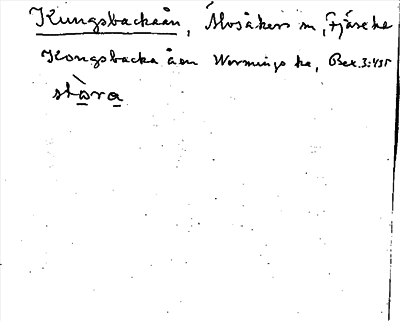 Kungsbackaån, Älvsåkers sn, Fjäre hd
Kongsbacka åen Wermings ka, Bex. 3:435
stòra